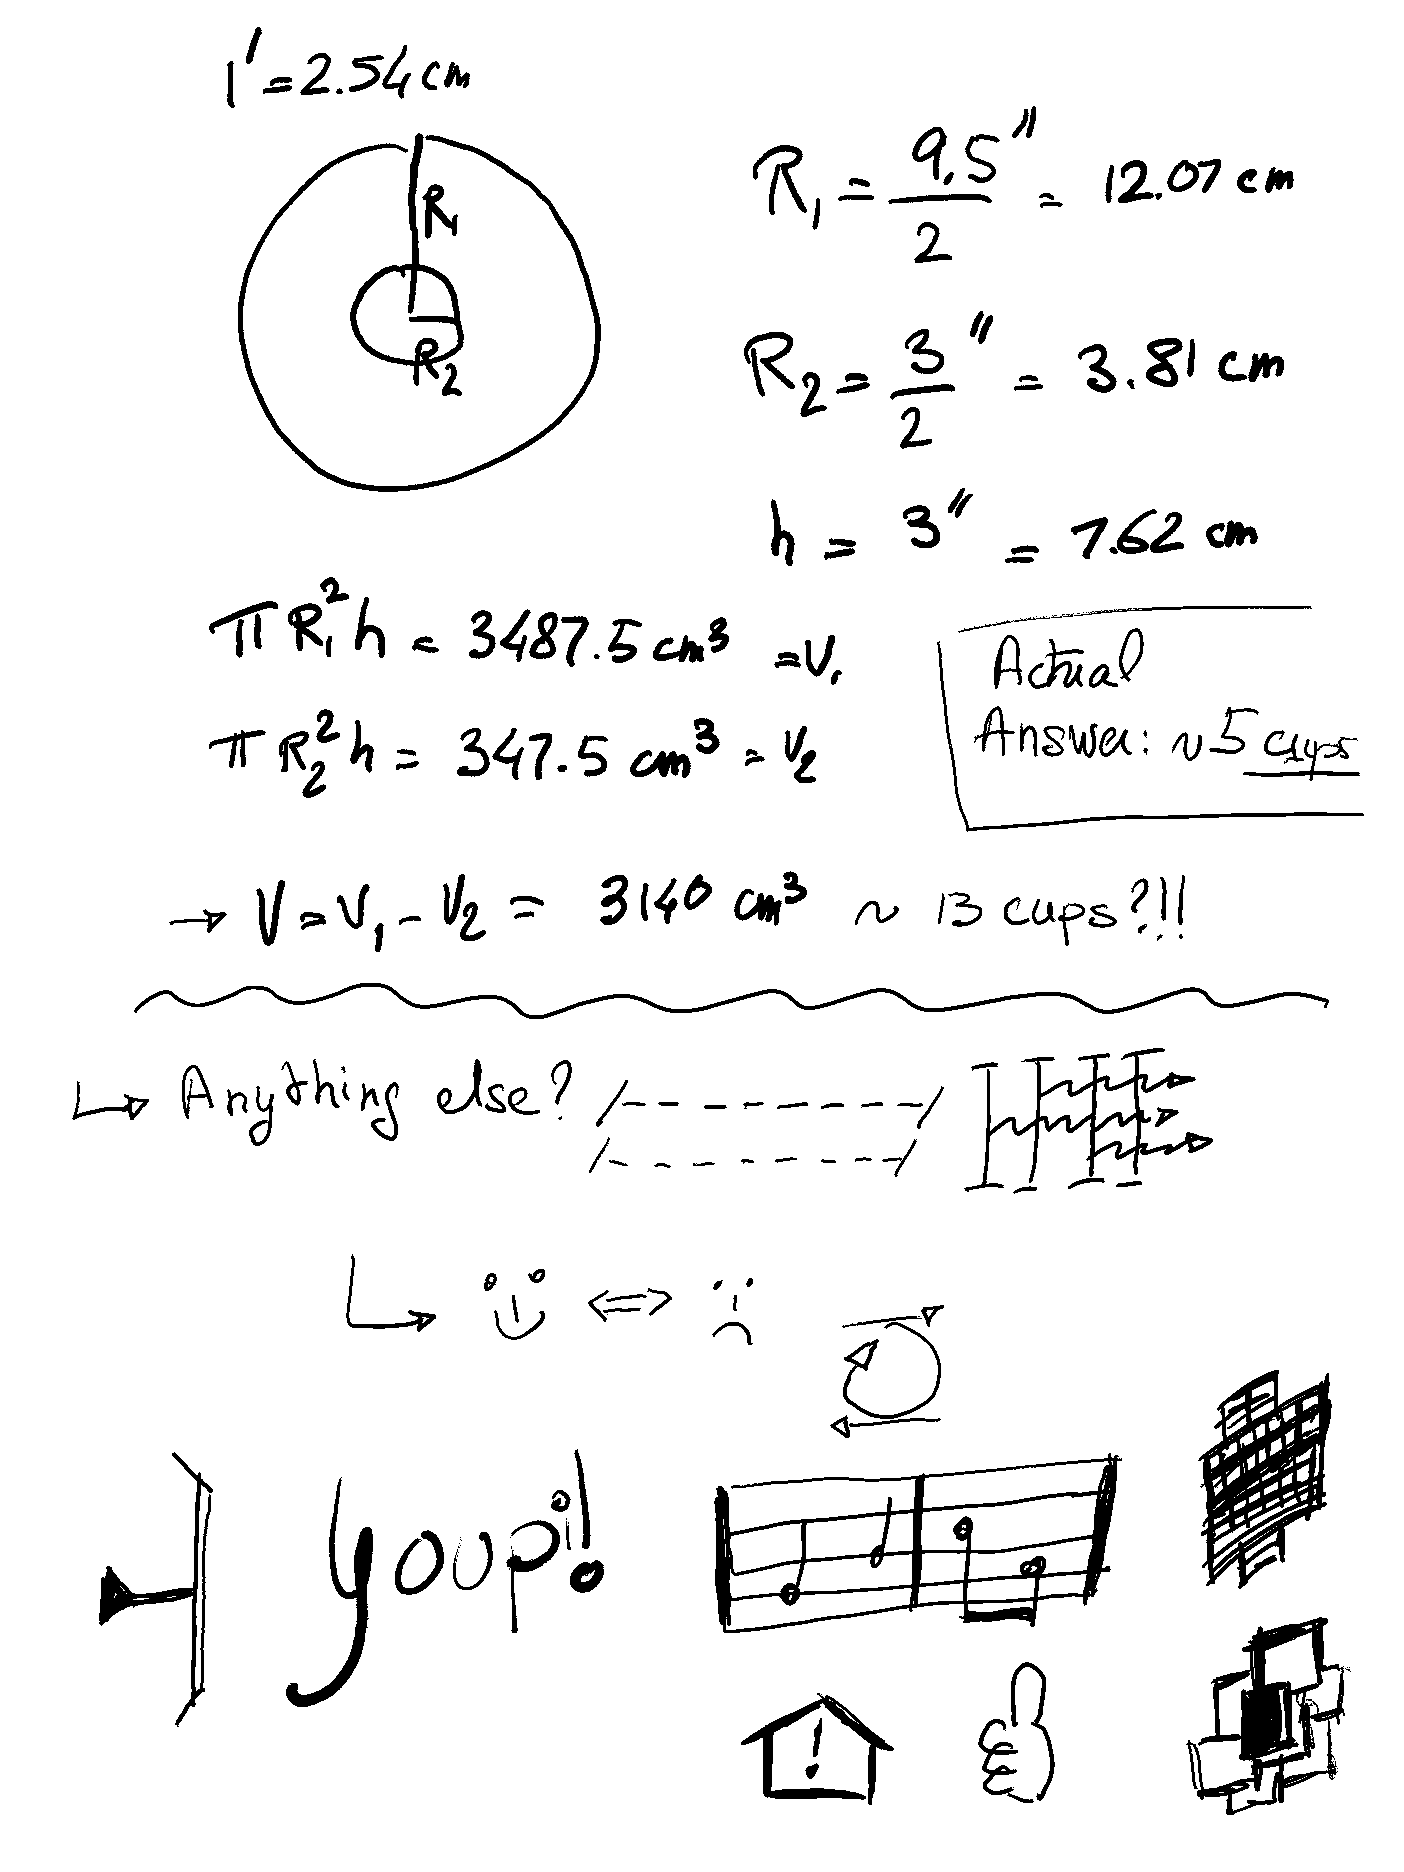 1' = 2.54 cm
R₁
R₂
R₁ = 9.5"/2 = 12.07 cm
R₂ = 3"/2 = 3.81 cm
h = 3" = 7.62 cm
πR₁²h = 3487.5 cm³ = V₁
πR₂²h = 347.5 cm³ = V₂
Actual
Answer: ~5 cups
→ V = V₁ - V₂ = 3140 cm³ ~ 13 cups?!!
↳ Anything else?
youpi!
!